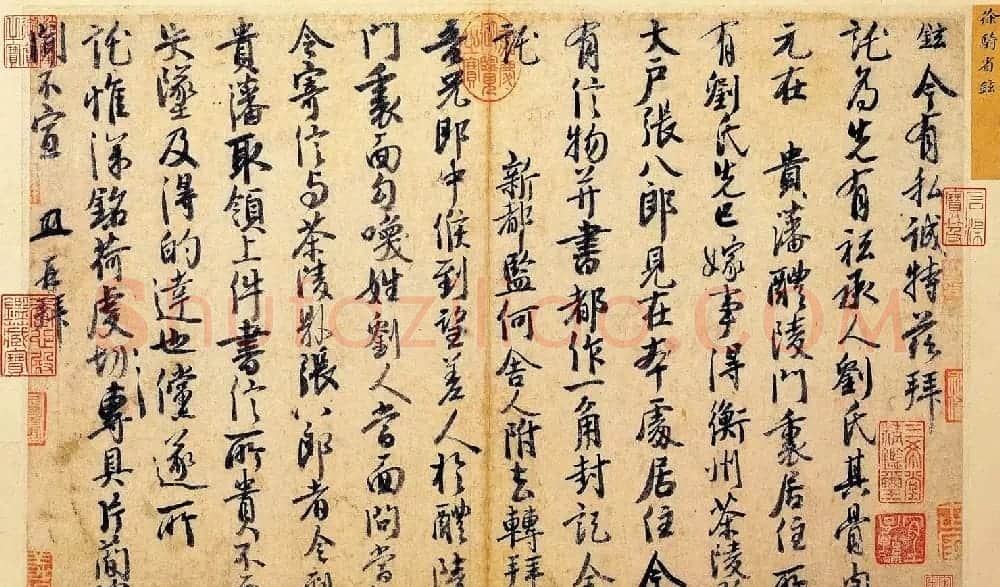 徐騎省鉉
鉉今有私誠特茲拜
託為先有祗承人劉氏其骨肉
元在 貴藩醴陵門裏居住所
有劉氏先已嫁事得衡州茶陵
大戶張八郎見在本處居住今
有信物并書都作一角封記全
託 新都監何舍人附去轉拜
吾兄郎中候到望差人於醴陵
門裏面勾喚姓劉人當面問當
令寄信与茶陵縣張八郎者令到
貴藩取領上件書信所貴不
失墜及得的達也儻遂所
託惟深銘荷虔切專具片簡
聞不宣 再拜
Shufazidao.COM